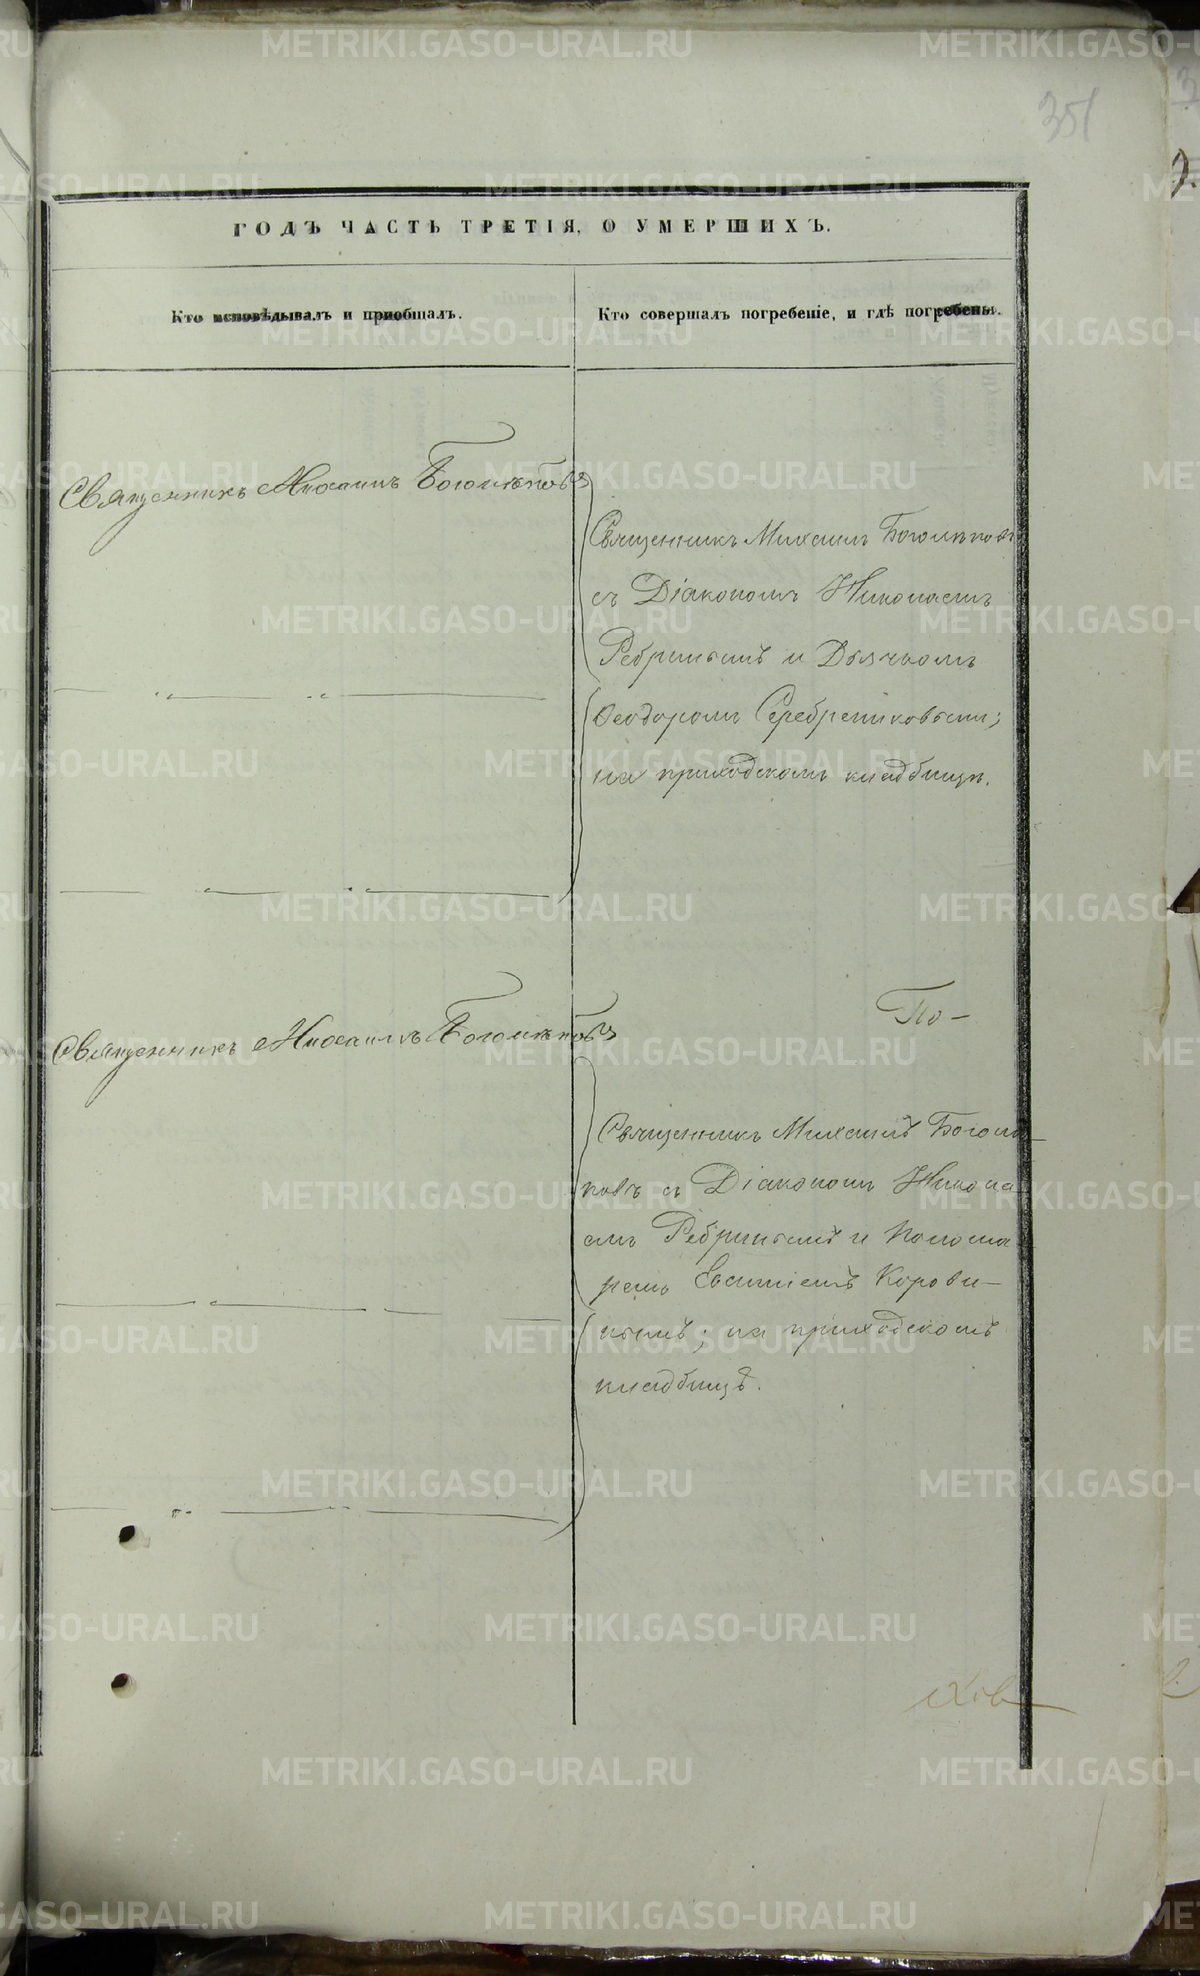 351
ГОДЪ ЧАСТЬ ТРЕТІЯ, О УМЕРШИХЪ.
Кто исповѣдывалъ и пріобщалъ.
Кто совершалъ погребеніе, и гдѣ погребены.
Священникъ Михаилъ Боголѣповъ
Священникъ Михаилъ Боголѣповъ
съ Діакономъ Николаемъ
Ребринымъ и Дьячкомъ
Ѳеодоромъ Серебрениковымъ;
на приходскомъ кладбищѣ.
Священникъ Михаилъ Боголѣповъ
По-
Священникъ Михаилъ Боголѣ-
повъ съ Діакономъ Никола
емъ Ребринымъ и Понома
ремъ Корови-
нымъ; на приходскомъ
кладбищѣ.
METRIKI.GASO-URAL.RU